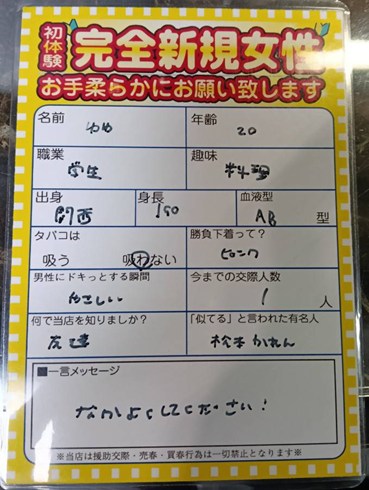 初体験
完全新規女性
お手柔らかにお願い致します
名前 ゆめ
年齢 20
職業 学生
趣味 料理
出身 関西
身長 150
血液型 AB 型
タバコは 吸う 吸わない
勝負下着って? ピンク
男性にドキっとする瞬間 やさしい
今までの交際人数 1 人
何で当店を知りましたか? 友達
「似てる」と言われた有名人 松本かれん
■一言メッセージ
なかよくしてください!
※当店は援助交際・売春・買春行為は一切禁止となります※